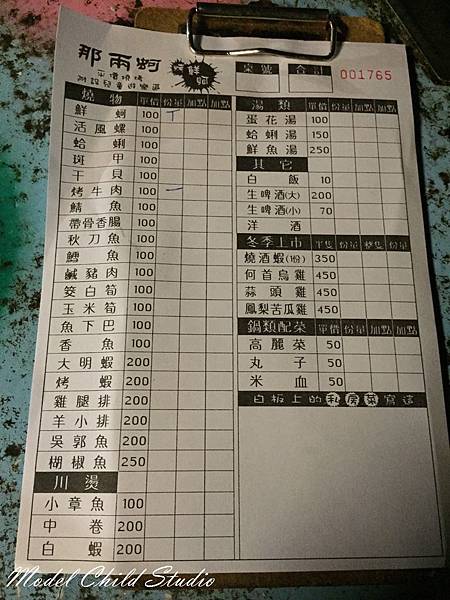 那兩蚵
平價燒烤
附設兒童遊樂區
桌號 合計
001765
燒物 單價 份量 加點 加點
鮮蚵 100
活風螺 100
蛤蜊 100
斑甲 100
干貝 100
烤牛肉 100
鯖魚 100
帶骨香腸 100
秋刀魚 100
鱈魚 100
鹹豬肉 100
筊白筍 100
玉米筍 100
魚下巴 100
香魚 100
大明蝦 200
烤蝦 200
雞腿排 200
羊小排 200
吳郭魚 200
椒魚 250
川燙
小章魚 100
中卷 200
白蝦 200
湯類 單價 份量 加點 加點
蛋花湯 100
蛤蜊湯 150
鮮魚湯 250
其它
白飯 10
生啤酒(大) 200
生啤酒(小) 70
洋酒
冬季上市 半隻 份量 整隻 份量
燒酒蝦(1份) 350
何首烏雞 450
蒜頭雞 450
鳳梨苦瓜雞 450
鍋類配菜 單價 份量 加點 加點
高麗菜 50
丸子 50
米血 50
白板上的私房菜寫這
Model Child Studio